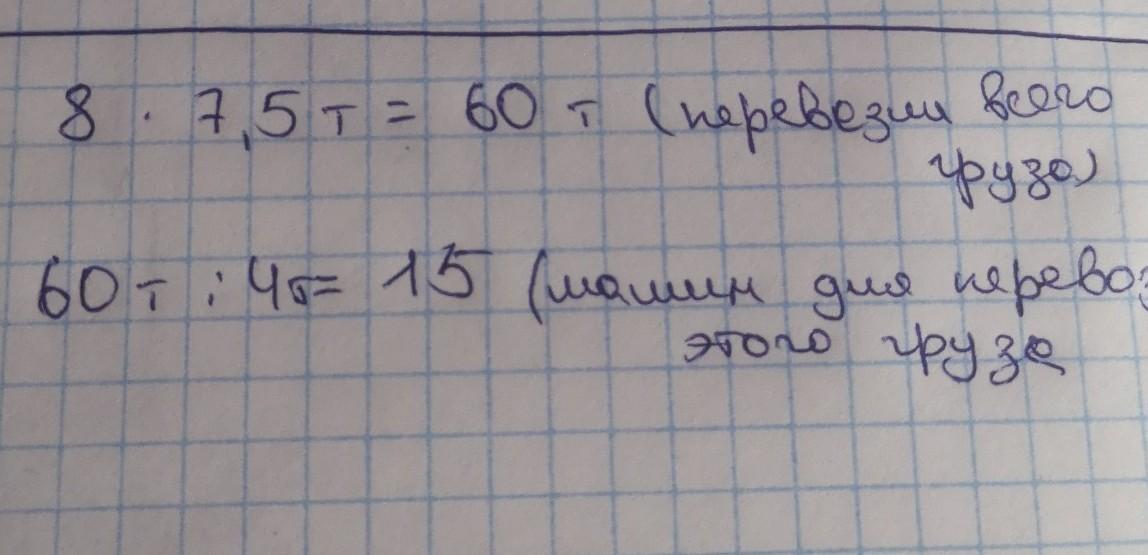 8 · 7,5 т = 60 т (перевезли всего
груза)
60 т : 4т = 15 (машин для перевоз
этого груза